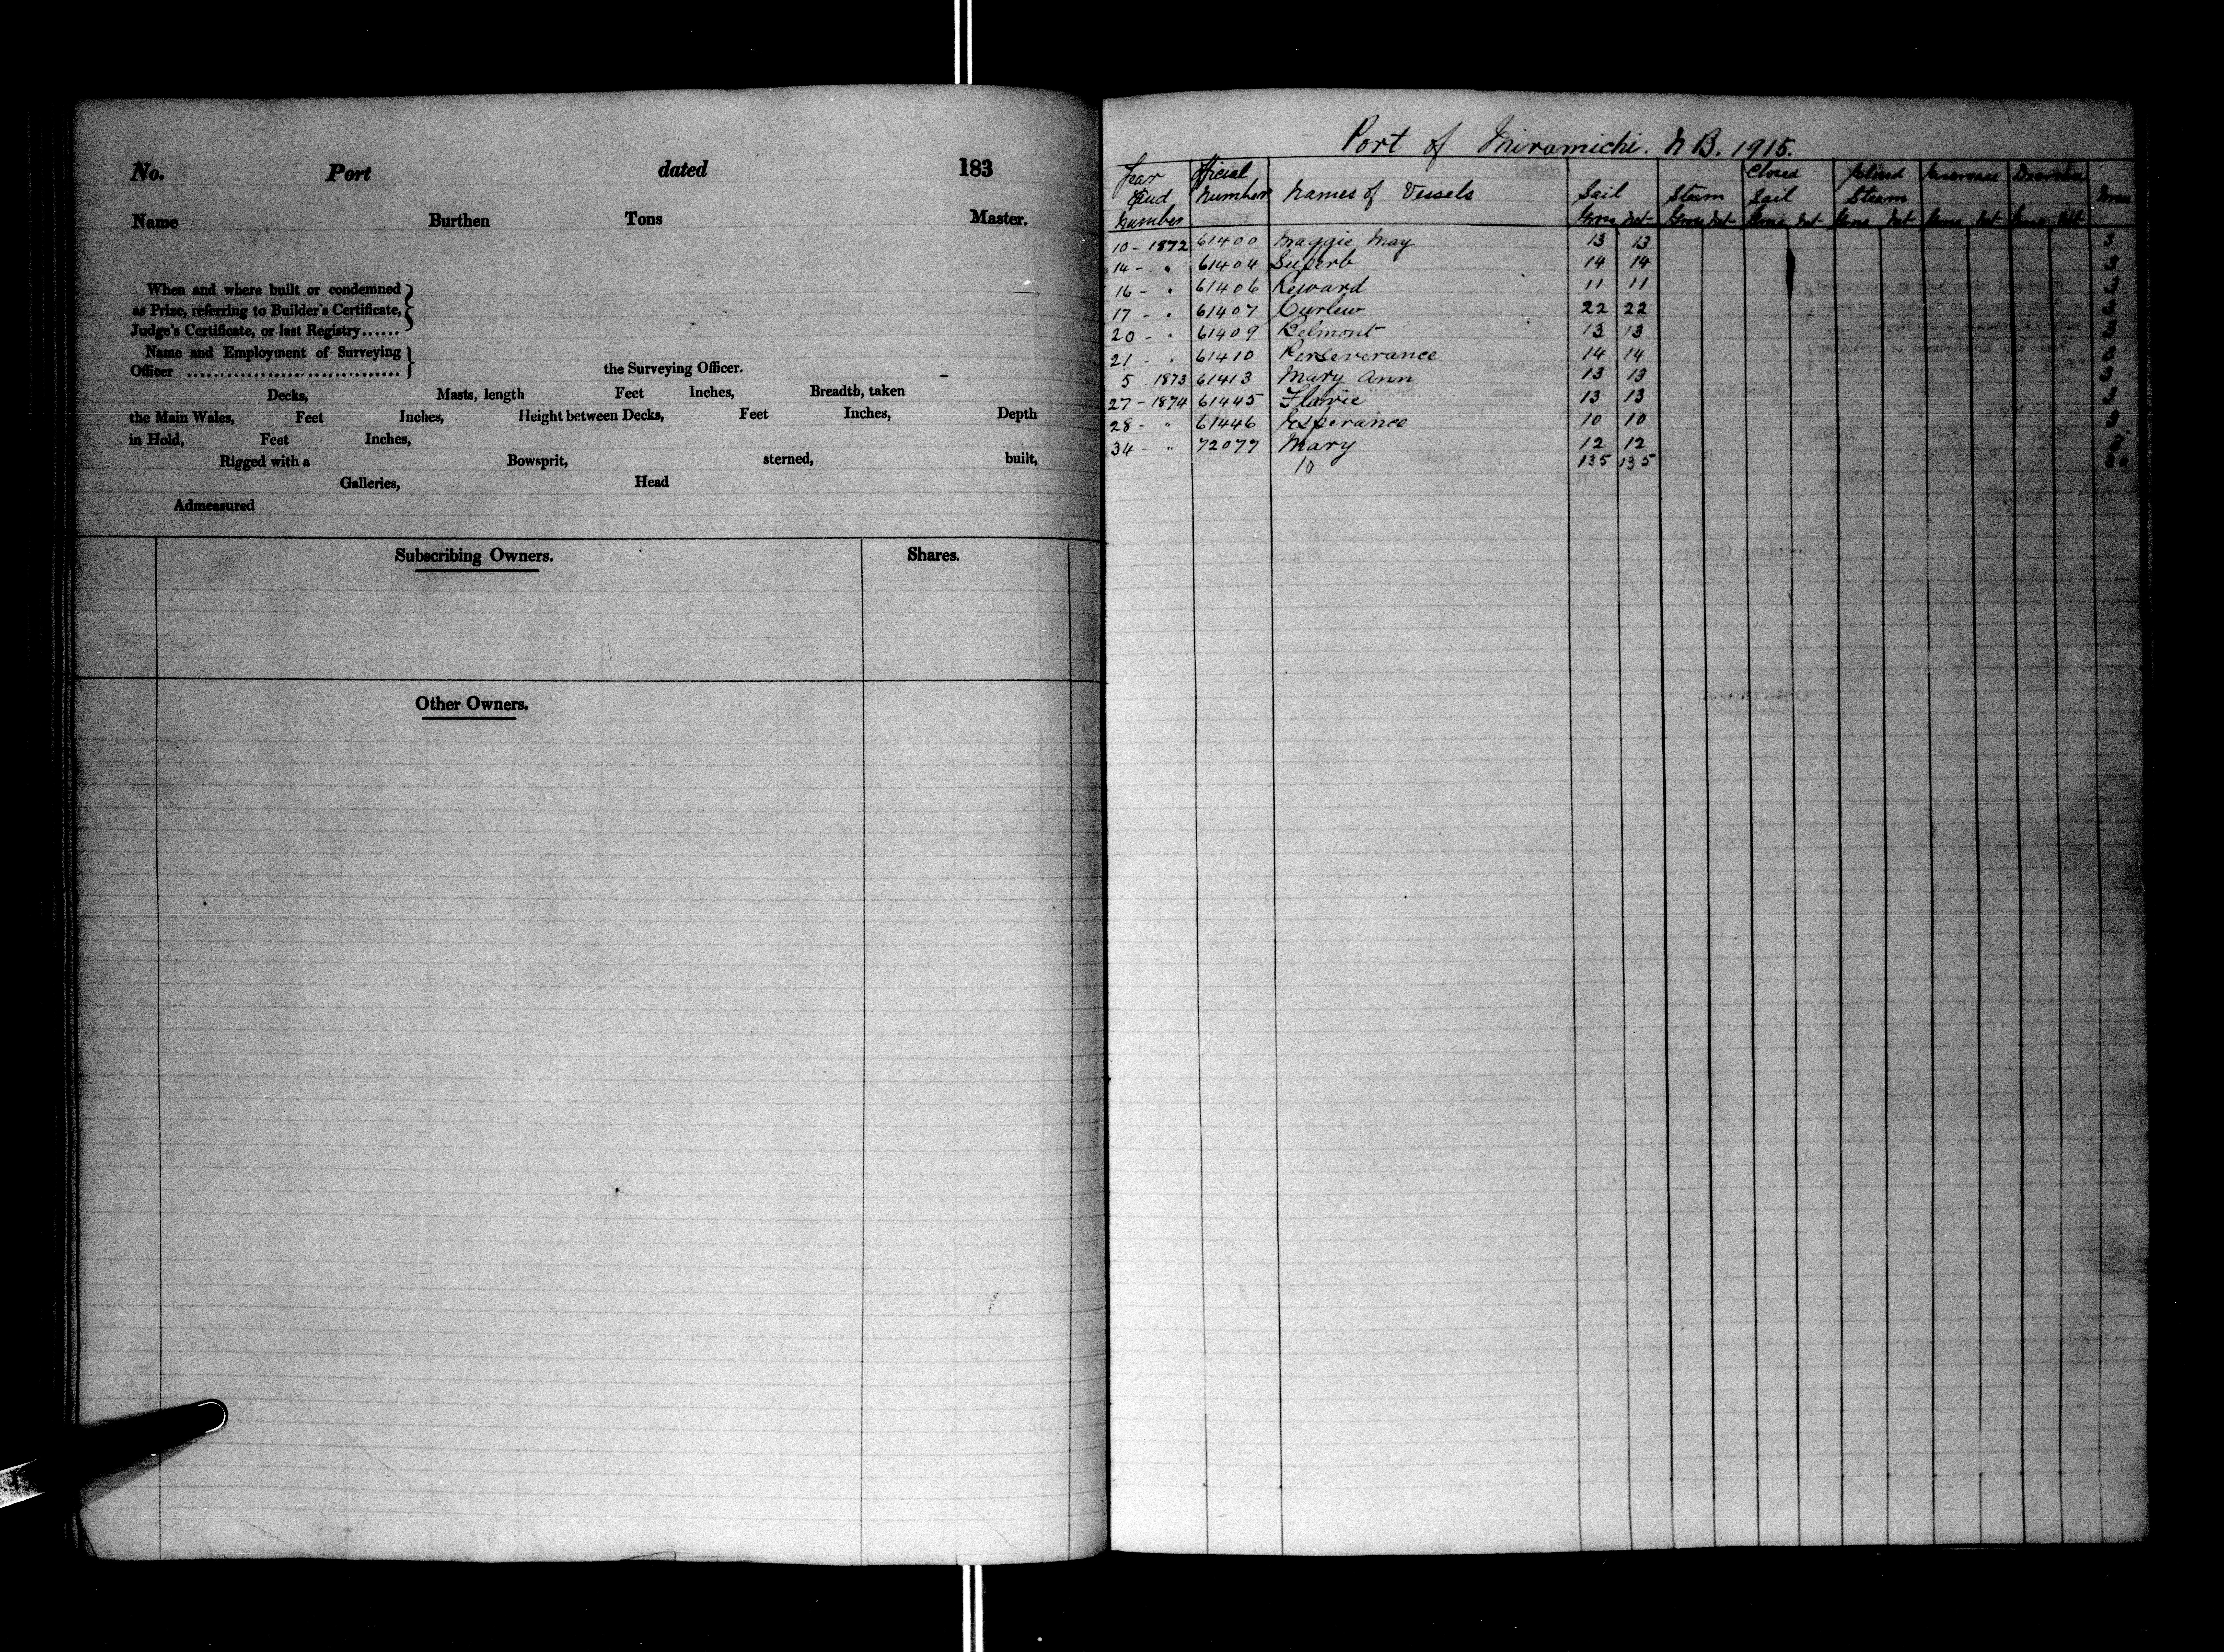 No. Port dated 183
Name Burthen Tons Master.
When and where built or condemned
as Prize, referring to Builder's Certificate,
Judge's Certificate, or last Registry......
Name and Employment of Surveying
Officer ................................ the Surveying Officer.
Decks, Masts, length Feet Inches, Breadth, taken
the Main Wales, Feet Inches, Height between Decks, Feet Inches, Depth
in Hold, Feet Inches,
Rigged with a Bowsprit, sterned, built,
Galleries, Head
Admeasured
Subscribing Owners. Shares.
Other Owners.
Port of Miramichi. N B. 1915.
Year Official Closed Closed Increase Decrease
and Number Names of Vessels Sail Steam Sail Steam
Number Gross Net Gross Net Gross Net Gross Net Gross Net Gross Net
10 - 1872 61400 Maggie May 13 13 3
14 - " 61404 Superb 14 14
16 - " 61406 Reward 11 11
17 - " 61407 Curlew 22 22
20 - " 61409 Belmont 13 13
21 - " 61410 Perseverance 14 14
5 1873 61413 Mary Ann 13 13
27 - 1874 61445 Flavie 13 13
28 - " 61446 Esperance 10 10
34 - " 72077 Mary 12 12
10 135 135